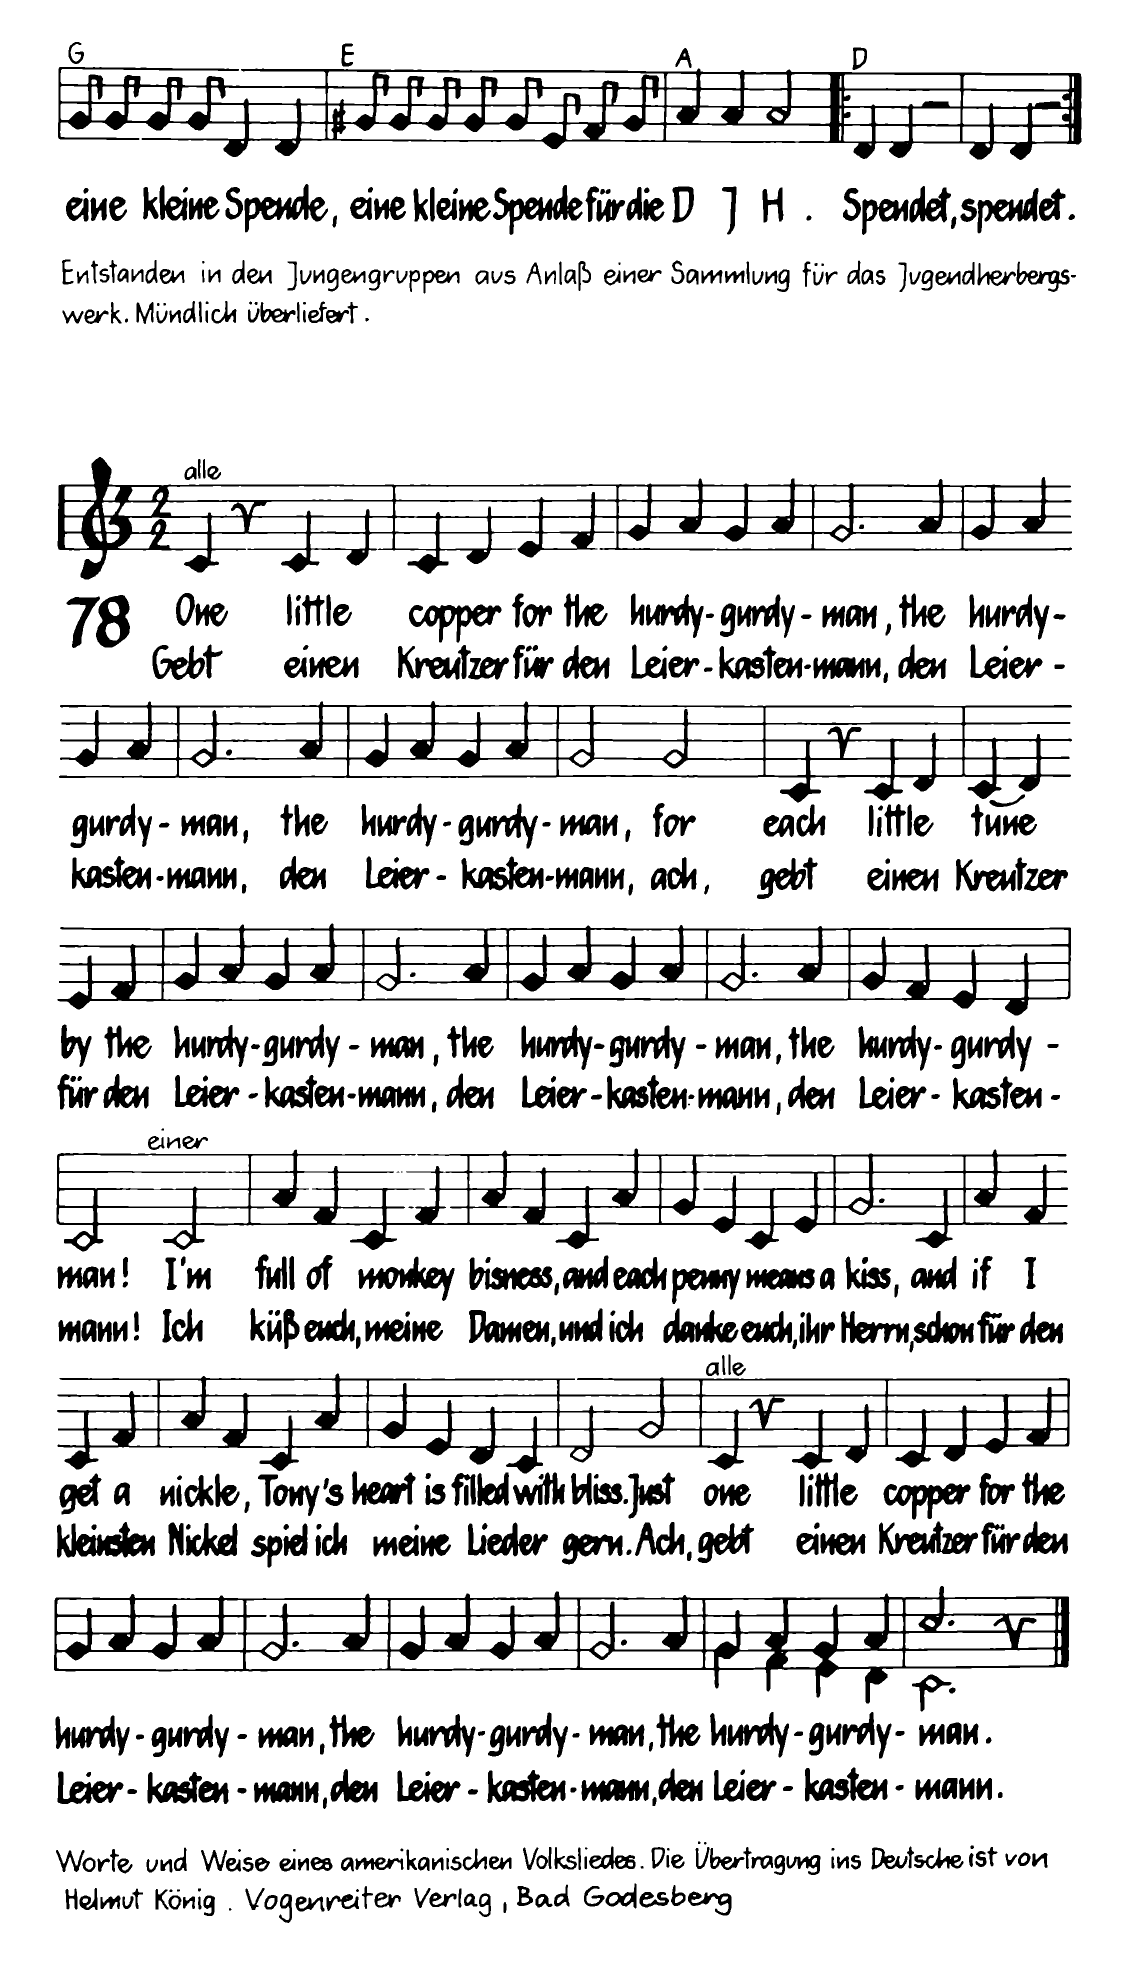 G E A D
eine kleine Spende, eine kleine Spende für die D J H. Spendet, spendet.
Entstanden in den Jungengruppen aus Anlaß einer Sammlung für das Jugendherbergs-
werk. Mündlich überliefert.
alle
2
2
78 One little copper for the hurdy-gurdy-man, the hurdy-
Gebt einen Kreutzer für den Leier-kasten-mann, den Leier-
gurdy-man, the hurdy-gurdy-man, for each little tune
kasten-mann, den Leier-kasten-mann, ach, gebt einen Kreutzer
by the hurdy-gurdy-man, the hurdy-gurdy-man, the hurdy-gurdy-
für den Leier-kasten-mann, den Leier-kasten-mann, den Leier-kasten-
einer
man! I'm full of monkey bisness, and each penny means a kiss, and if I
mann! Ich küß euch, meine Damen, und ich danke euch, ihr Herrn, schon für den
alle
get a nickle, Tony's heart is filled with bliss. Just one little copper for the
kleinsten Nickel spiel ich meine Lieder gern. Ach, gebt einen Kreutzer für den
hurdy-gurdy-man, the hurdy-gurdy-man, the hurdy-gurdy-man.
Leier-kasten-mann, den Leier-kasten-mann, den Leier-kasten-mann.
Worte und Weise eines amerikanischen Volksliedes. Die Übertragung ins Deutsche ist von
Helmut König. Vogenreiter Verlag, Bad Godesberg